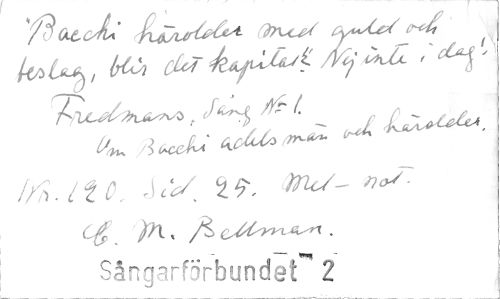 "Bacchi härolder med guld och
beslag, blir det kapitel"? Nej inte i dag!
Fredmans, Sång No 1.
Om Bacchi adelsmän och härolder.
Nr. 120. Sid. 25. Mel-not.
C. M. Bellman.
Sångarförbundet 2